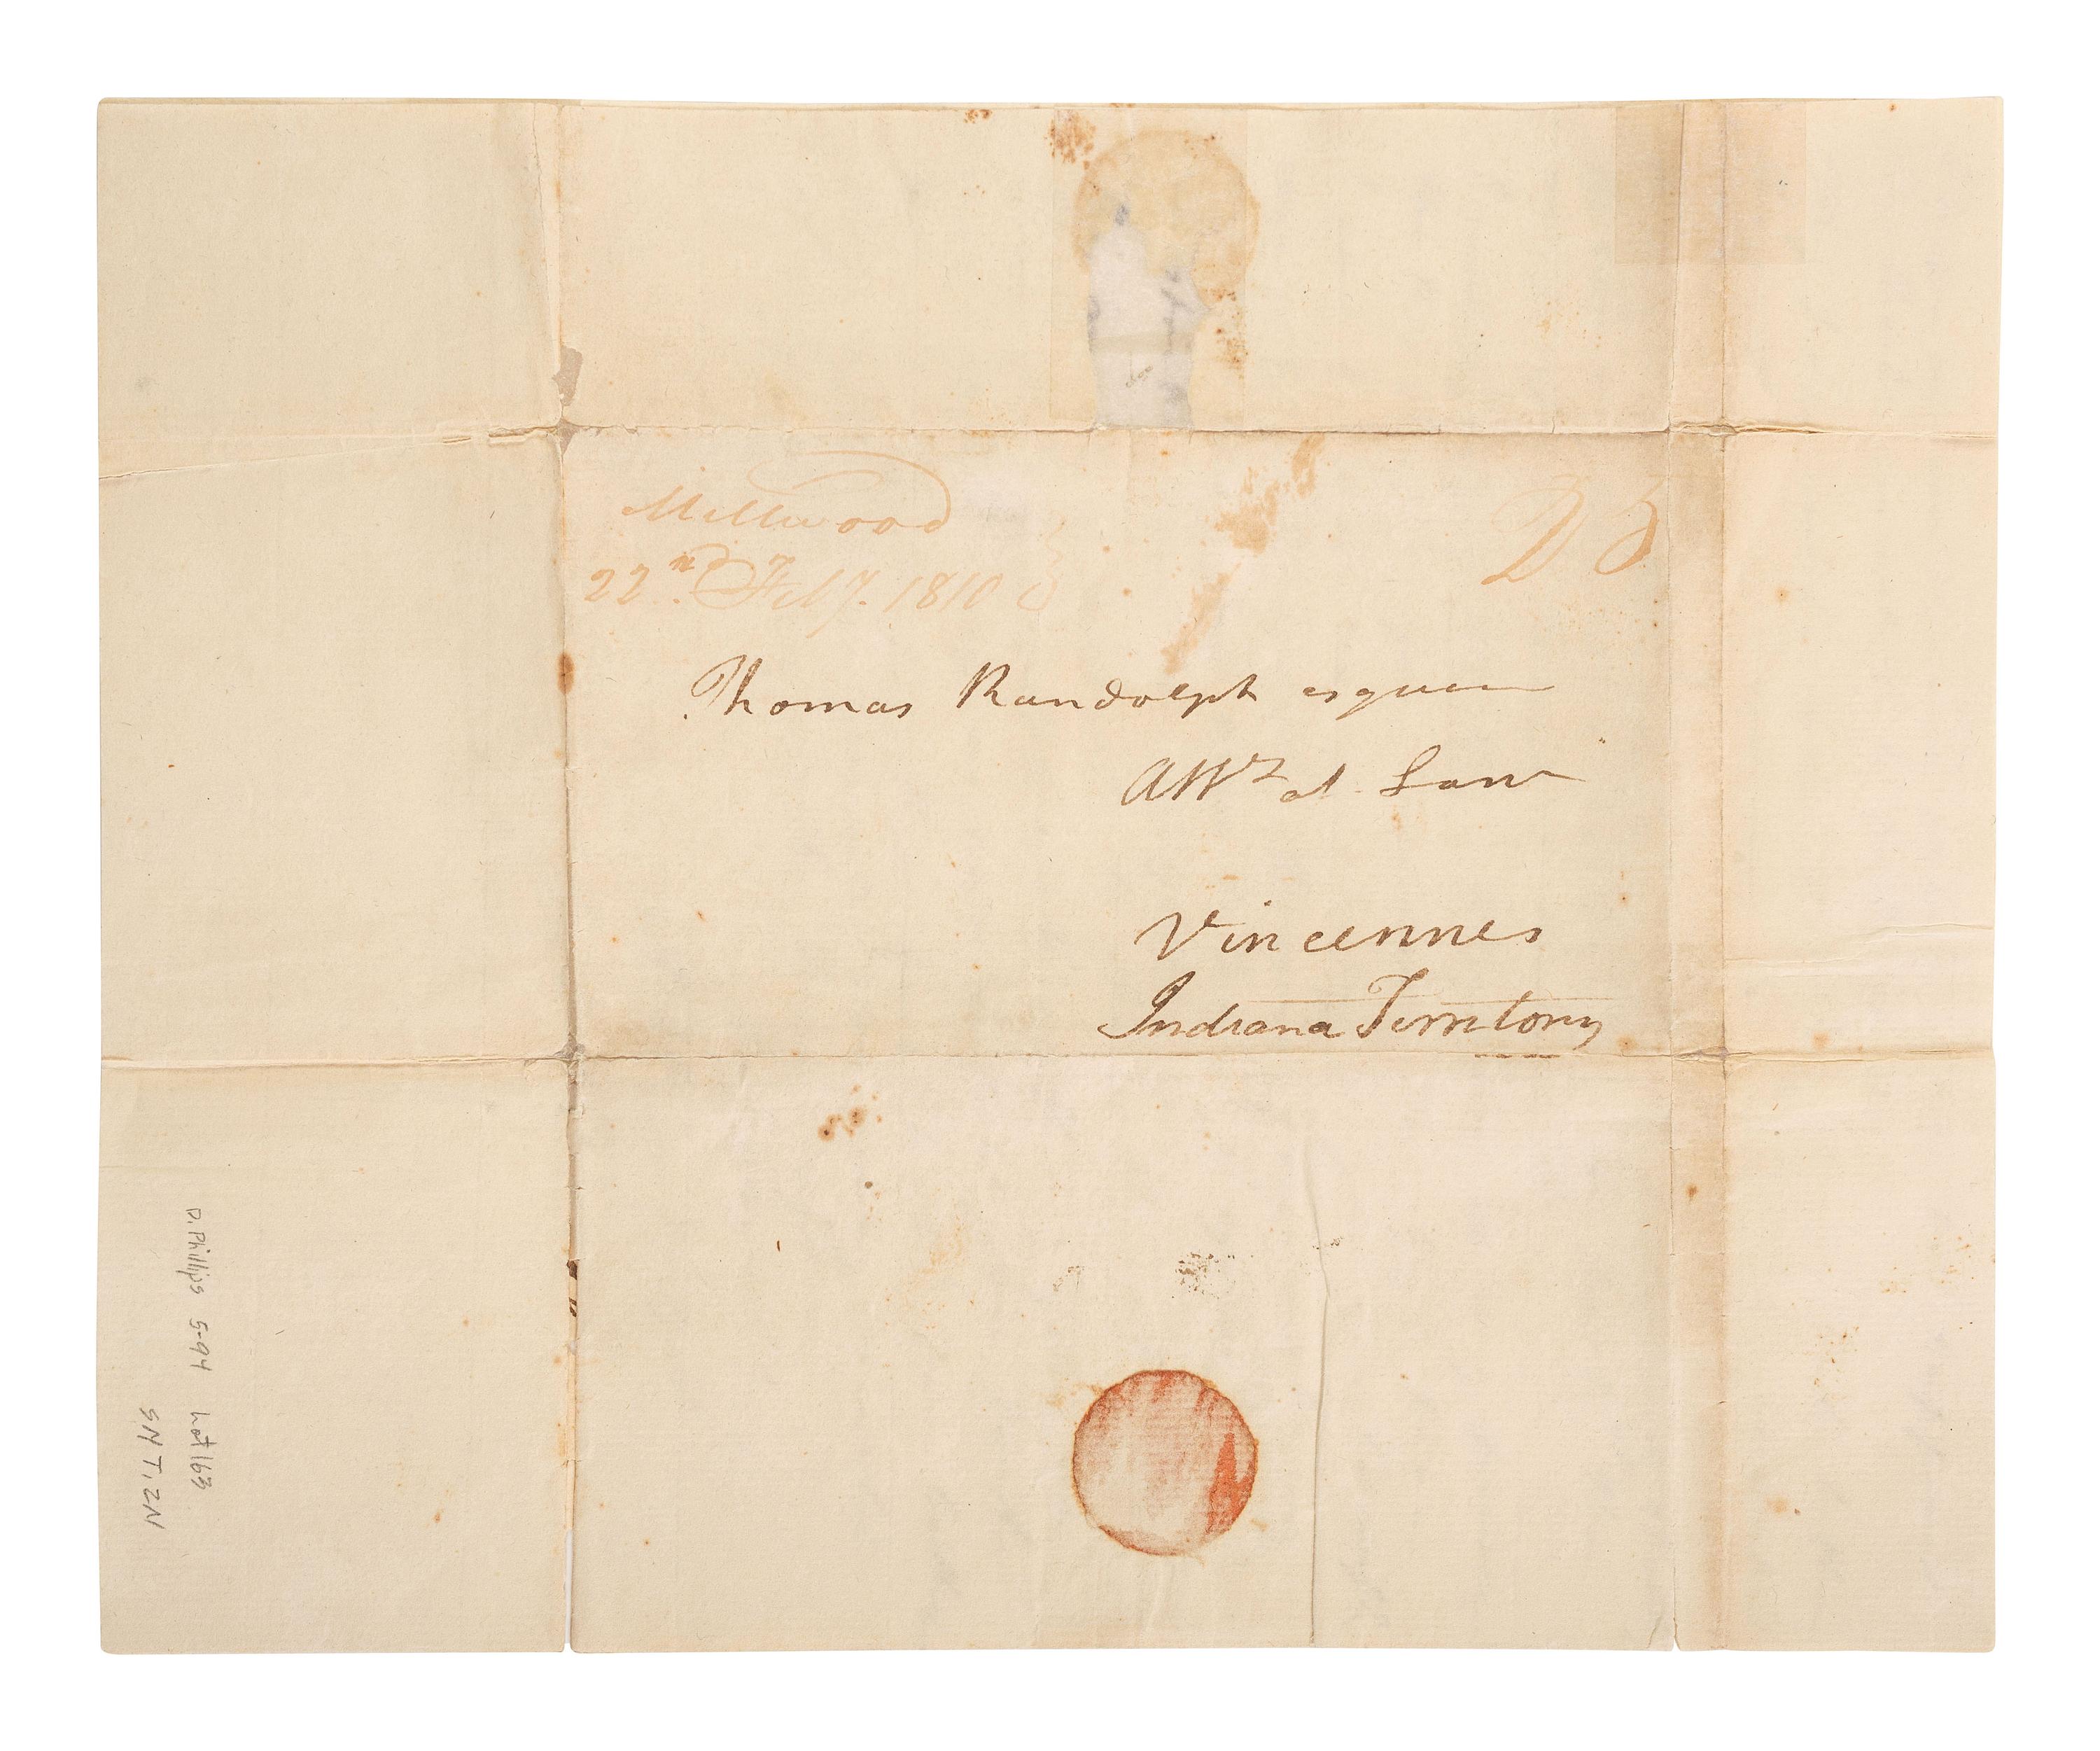 Millwood
22nd Feby. 1810
Thomas Randolph esquire
Atty at Law
Vincennes
Indiana Territory
R. Phillips 5-94 Lot 163